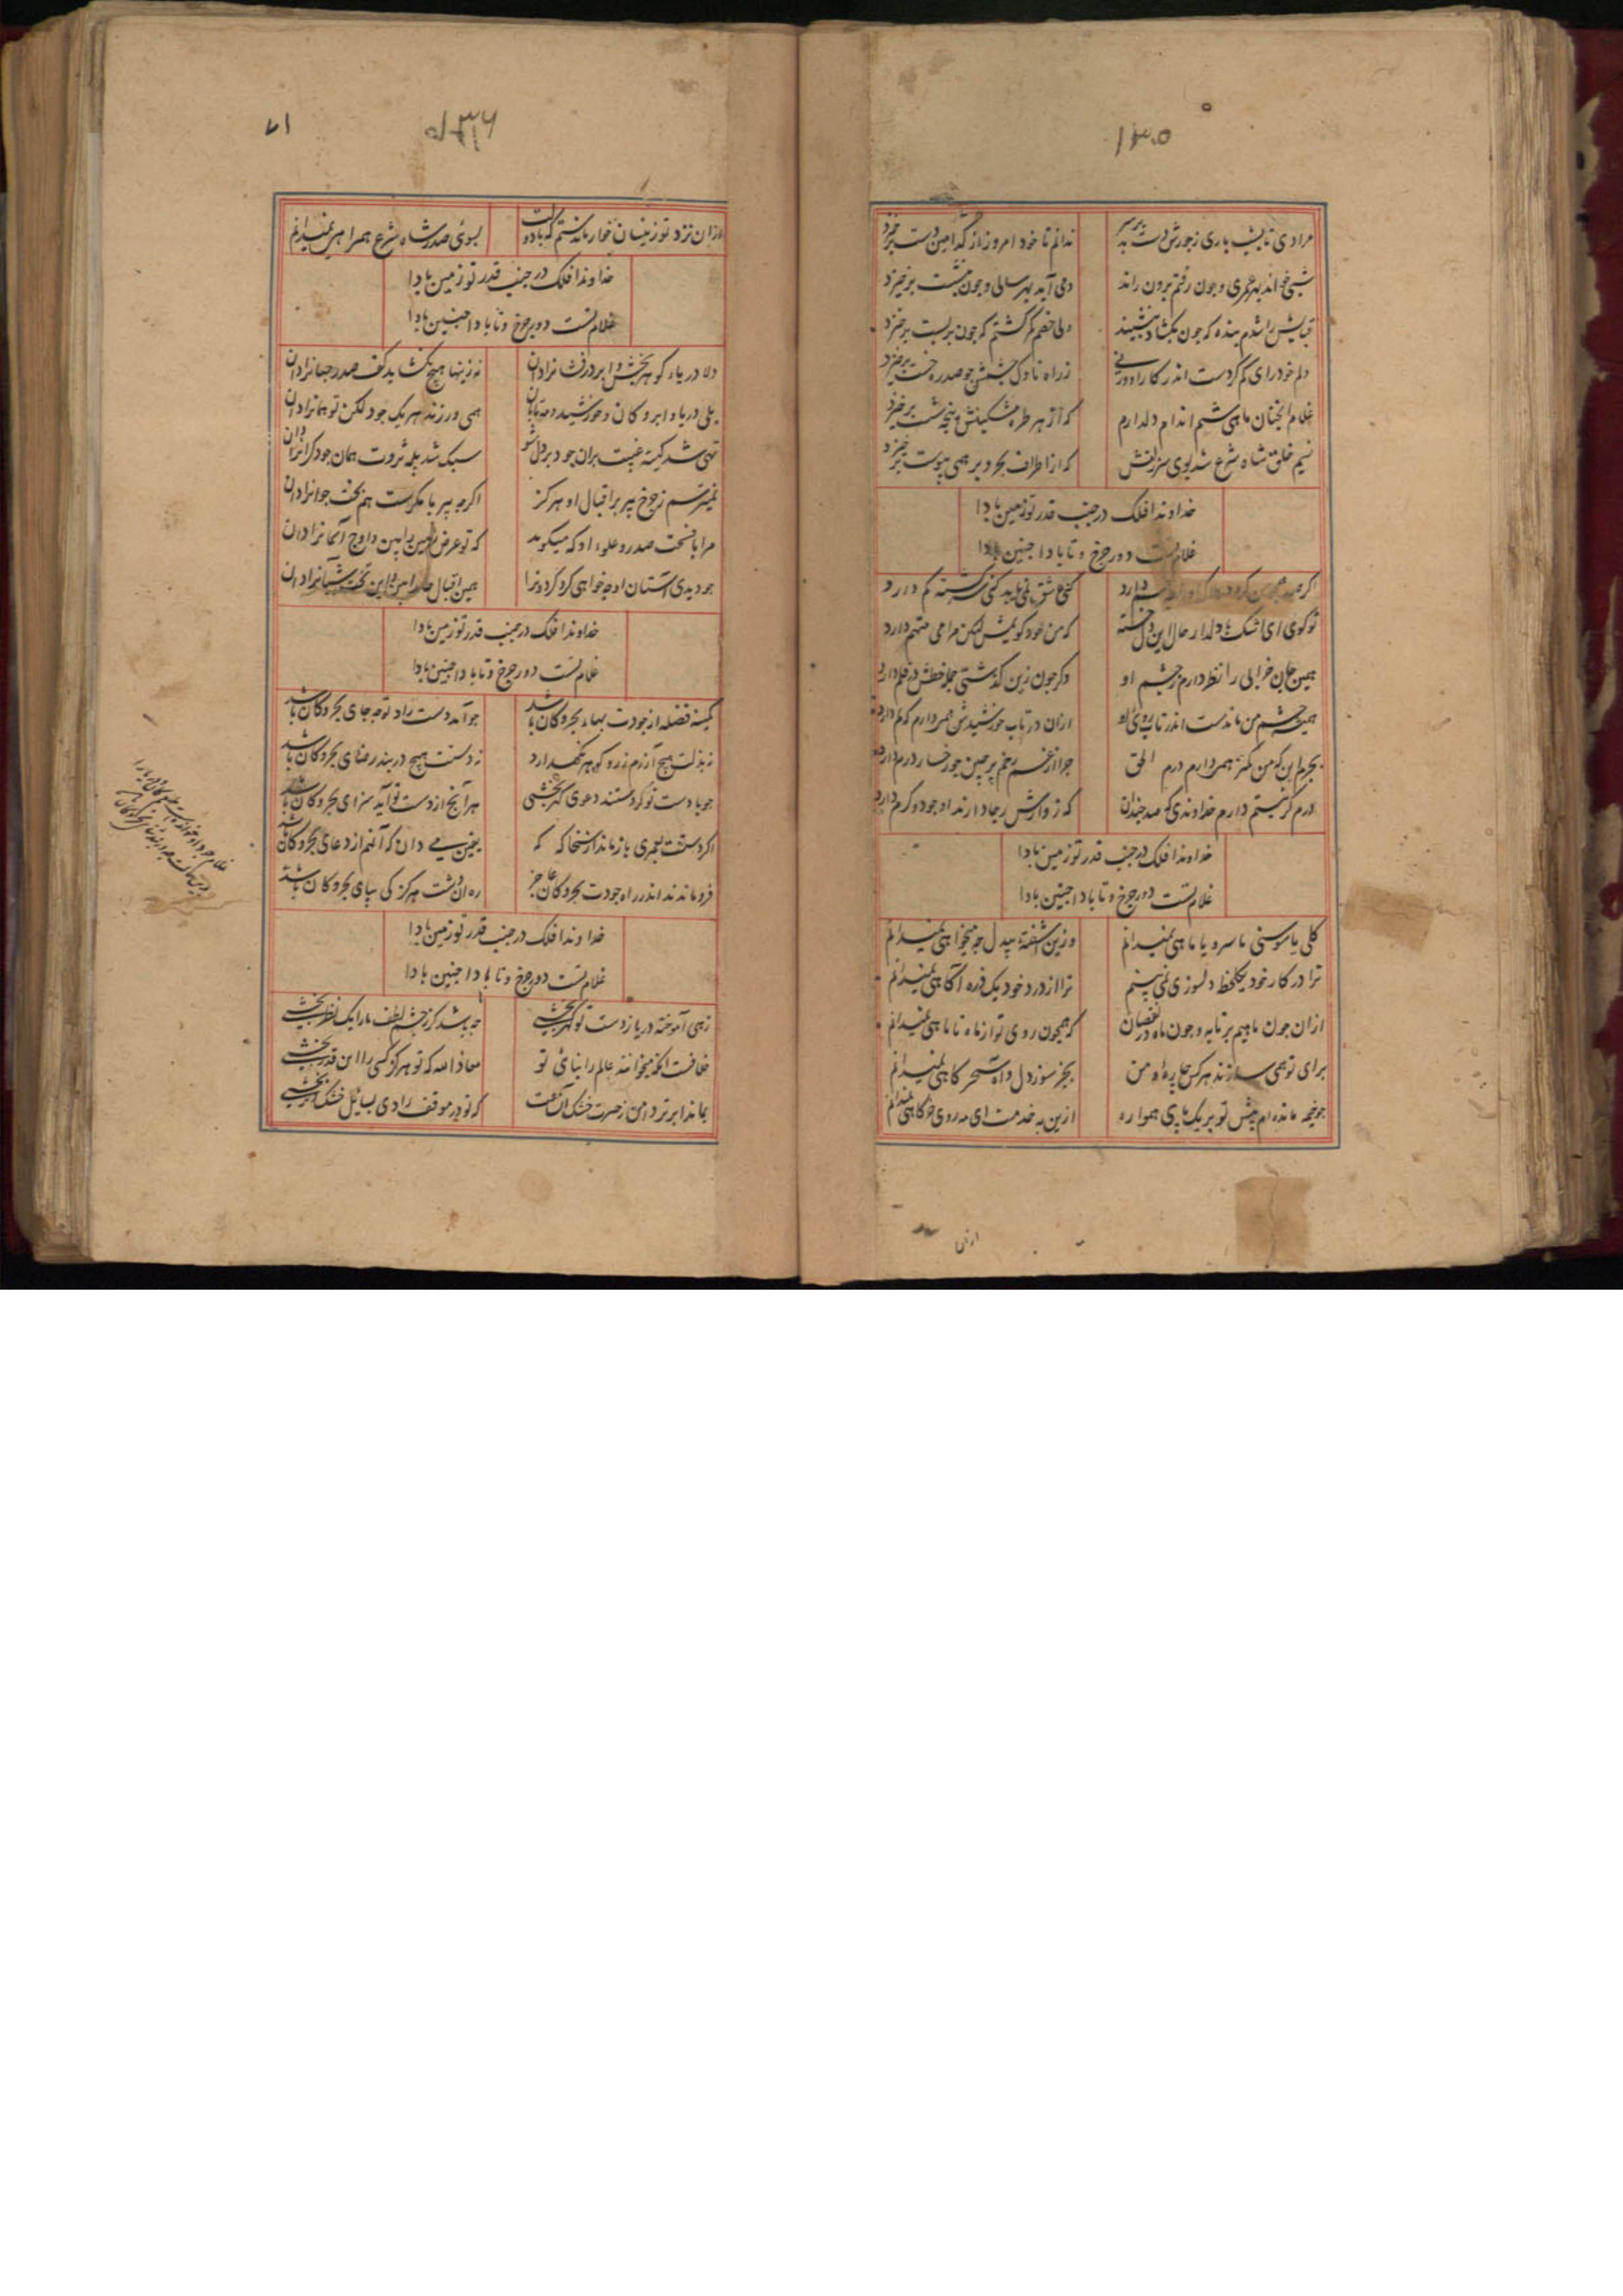 ۱۳۵
مرا دی تا بشب باری ز جورش دست بد بر سر
ندانم تا خود امروز از کدامین دست برخیزد
شبی خواند بهر عمری و چون رفتم برون راند
دمی آید بهر سالی و چون بنشست برخیزد
قبایش را شدم بنده که چون بکشاد بنشیند
ولی خصم کمر کشتم که چون بربست برخیزد
دلم خود رای کم کردست اندر کار او ورنی
ز راه ناوک چشمش جو صدره خست برخیزد
غلام انچنان ماهی شم اندام دلدارم
که از هر طره مشکینش پنجه شست برخیزد
نسیم خلق شاه شرع شد بوی سر زلفش
که از اطراف بحر و بر همی پیوست برخیزد
خداوندا فلک در جنب قدر تو زمین بادا
غلام تست دور چرخ و تا بادا جنین بادا
اکرچه
دارد
کنی عشق
کم دارد
تو کوی ای اشک با دلدار حال این دل خسته
که من خود کویمش لیکن مرا می متهم دارد
همین عین خرابی را نظر دارم ز چشم او
وکر چون زین کذشتی جمله خطش در قلم دارد
همیشه چشم من ماندست اندر تاب روی او
ازان در تاب خورشیدش همی دارم که نم دارد
بجرم این که من کمتر همی دارم درم الحق
چرا از غم رخم پر چین چو رخسار درم دارد
درم کر نیستم دارم خداوندی که صد چندان
که زوارش رجا دارند او جود و کرم دارد
خداوندا فلک در جنب قدر تو زمین بادا
غلام تست دور چرخ و تا بادا جنین بادا
کلی یا سوسنی یا سرو یا ماهی نمیدانم
وزین آشفته بیدل چه میخواهی نمیدانم
ترا در کار خود یکلحظه دلسوزی نمی بینم
ترا از درد خود یک ذره آکاهی نمیدانم
ازان چون ماهیم بر تابه و چون ماه در نقصان
که همچون روی تو از ماه تا ماهی نمیدانم
برای تو همی سازند هر کس چاره و من
بجز سوز دل و آه سحرکاهی نمیدانم
چو خیمه مانده ام پیش تو بر یک پای همواره
ازین به خدمت ای مه روی خرکاهی نمیدانم
ازان
۱۳۶
۷۱
ازان نزد تو زینسان خوار ماندستم که با دولت
بسوی صدر شاه شرع همراهی نمیدانم
خداوندا فلک در جنب قدر تو زمین بادا
غلام تست دور چرخ و تا بادا چنین بادا
دلا دریاء کوهر بخش و ابر درفشان را دان
نه زینها هیچ نکشاید کف صدر جهانرا دان
بلی دریا و ابر و کان و خورشید و مه تابان
همی ورزند هر یک جود لکن تو همانرا دان
تهی شد کیسه غیبت بران جود بر دل شو
سبک شد پله ثروت همان جود کرانرا دان
نمیترسم ز چرخ پیر بر اقبال او هرکز
اکرچه پیر با مکرست هم بخت جوانرا دان
مرا با فسحت صدر و علوء او که میکوید
که تو عرض زمین را بین و اوج آسمانرا دان
چو دیدی آستان او چه خواهی کرد کردونرا
همین اقبال
این
آشیانرا دان
خداوندا فلک در جنب قدر تو زمین بادا
غلام تست دور چرخ و تا بادا چنین بادا
کمینه فضله از جودت بهاء بحر و کان باشد
چو آمد دست راد تو چه جای بحر و کان باشد
ز بذلت هیچ آزرم زر و کوهر نکهدارد
نه دستت هیچ در بند رضای بحر و کان باشد
چو با دست تو کردستند دعوی کهر بخشی
هر آنچ از دست تو آید سزای بحر و کان باشد
اکر دستت بعمری باز ماند از سخا که که
یقین می دان که آنهم از دعای بحر و کان باشد
فرو ماندند اندر راه جودت بحر و کان عاجز
ره آن دست هرکز کی بپای بحر و کان باشد
خداوندا فلک در جنب قدر تو زمین بادا
غلام تست دور چرخ و تا بادا جنین بادا
زهی آموخته دریا ز دست تو کهر بخشی
چه باشد کر ز چشم لطف ما را یک نظر بخشی
خلافت انکه میخوانند عالم را بنای تو
معاذ الله که تو هرکز کسی را این قدر بخشی
بماند ابر تر دامن ز حسرت خشک
که تو در موقف رادی بسائل خشک و تر بخشی